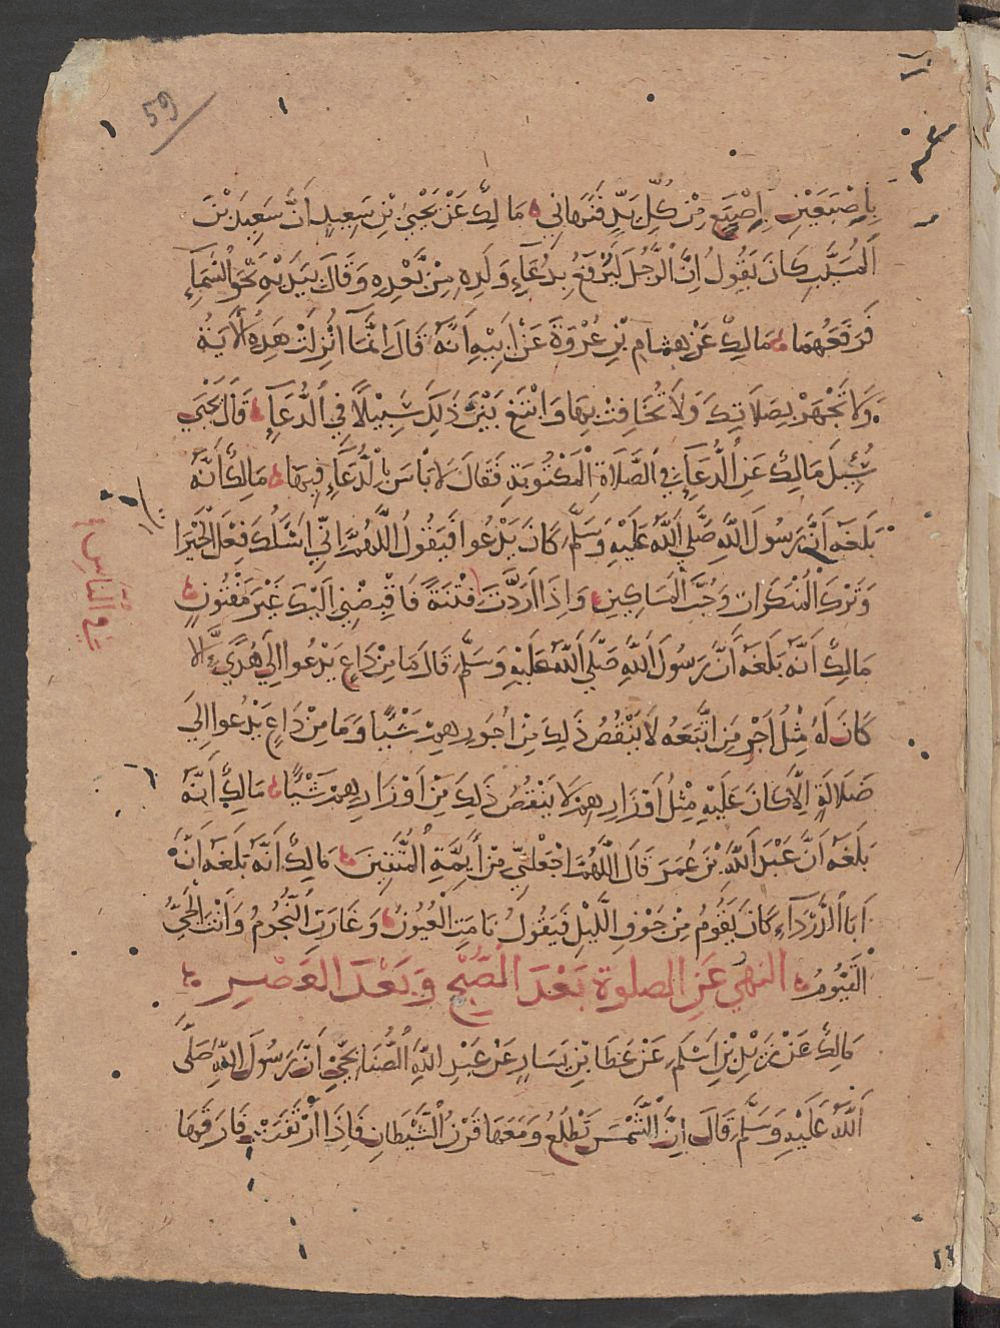 59
بِاِصْبَعَيْنِ اِصْبَعٍ مِنْ كُلِّ يَدٍ فَنَهَانِي مَالِكٌ عَنْ يَحْيَى بْنِ سَعِيدٍ اَنَّ سَعِيدَ بْنَ
الْمُسَيَّبِ كَانَ يَقُولُ اِنَّ الرَّجُلَ لَيُرْفَعُ بِدُعَآءِ وَلَدِهِ مِنْ بَعْدِهِ وَقَالَ بِيَدَيْهِ نَحْوَ السَّمَآءِ
فَرَفَعَهُمَا مَالِكٌ عَنْ هِشَامِ بْنِ عُرْوَةَ عَنْ اَبِيْهِ اَنَّهُ قَالَ اِنَّمَا اُنْزِلَتْ هَذِهِ الْاَيَةُ
وَلَا تَجْهَرْ بِصَلَاتِكَ وَلَا تُخَافِتْ بِهَا وَابْتَغِ بَيْنَ ذَلِكَ سَبِيْلًا فِي الدُّعَآءِ قَالَ يَحْيَى
سُئِلَ مَالِكٌ عَنِ الدُّعَآءِ فِي الصَّلَاةِ الْمَكْتُوبَةِ فَقَالَ لَا بَاْسَ بِالدُّعَآءِ فِيهَا مَالِكٌ اَنَّهُ
بَلَغَهُ اَنَّ رَسُولَ اللَّهِ صَلَّى اللَّهُ عَلَيْهِ وَسَلَّمَ كَانَ يَدْعُوا فَيَقُولُ اللَّهُمَّ اِنِّي اَسْئَلُكَ فِعْلَ الْخَيْرَا
وَتَرْكَ الْمُنْكَرَاتِ وَحُبَّ الْمَسَاكِينِ وَاِذَا اَرَدْتَ فِتْنَةً فَاقْبِضْنِي اِلَيْكَ غَيْرَ مَفْتُونٍ
فِي النَّاسِ
مَالِكٌ اَنَّهُ بَلَغَهُ اَنَّ رَسُولَ اللَّهِ صَلَّى اللَّهُ عَلَيْهِ وَسَلَّمَ قَالَ مَا مِنْ دَاعٍ يَدْعُوا اِلَى هُدًى اِلَّا
كَانَ لَهُ مِثْلُ اَجْرِ مَنِ اتَّبَعَهُ لَا يَنْقُصُ ذَلِكَ مِنْ اُجُورِهِمْ شَيْئًا وَمَا مِنْ دَاعٍ يَدْعُوا اِلَى
ضَلَالَةٍ اِلَّا كَانَ عَلَيْهِ مِثْلُ اَوْزَارِهِمْ لَا يَنْقُصُ ذَلِكَ مِنْ اَوْزَارِهِمْ شَيْئًا مَالِكٌ اَنَّهُ
بَلَغَهُ اَنَّ عَبْدَ اللَّهِ بْنَ عُمَرَ قَالَ اللَّهُمَّ اجْعَلْنِي مِنْ اَيِمَّةِ الْمُتَّقِينَ مَالِكٌ اَنَّهُ بَلَغَهُ اَنَّ
اَبَا الدَّرْدَآءِ كَانَ يَقُومُ مِنْ جَوْفِ اللَّيْلِ فَيَقُولُ نَامَتِ الْعُيُونُ وَغَارَتِ النُّجُومُ وَاَنْتَ الْحَيُّ
الْقَيُّومُ النهي عَنِ الصلوة بَعْدَ الصُّبْحِ وَبَعْدَ العَصْرِ
مَالِكٌ عَنْ زَيْدِ بْنِ اَسْلَمَ عَنْ عَطَا بْنِ يَسَارٍ عَنْ عَبْدِ اللَّهِ الصُّنَابِحِيِّ اَنَّ رَسُولَ اللَّهِ صَلَّى
اللَّهُ عَلَيْهِ وَسَلَّمَ قَالَ اِنَّ الشَّمْسَ تَطْلَعُ وَمَعَهَا قَرْنُ الشَّيْطَانِ فَاِذَا ارْتَفَعَتْ فَارَقَهَا